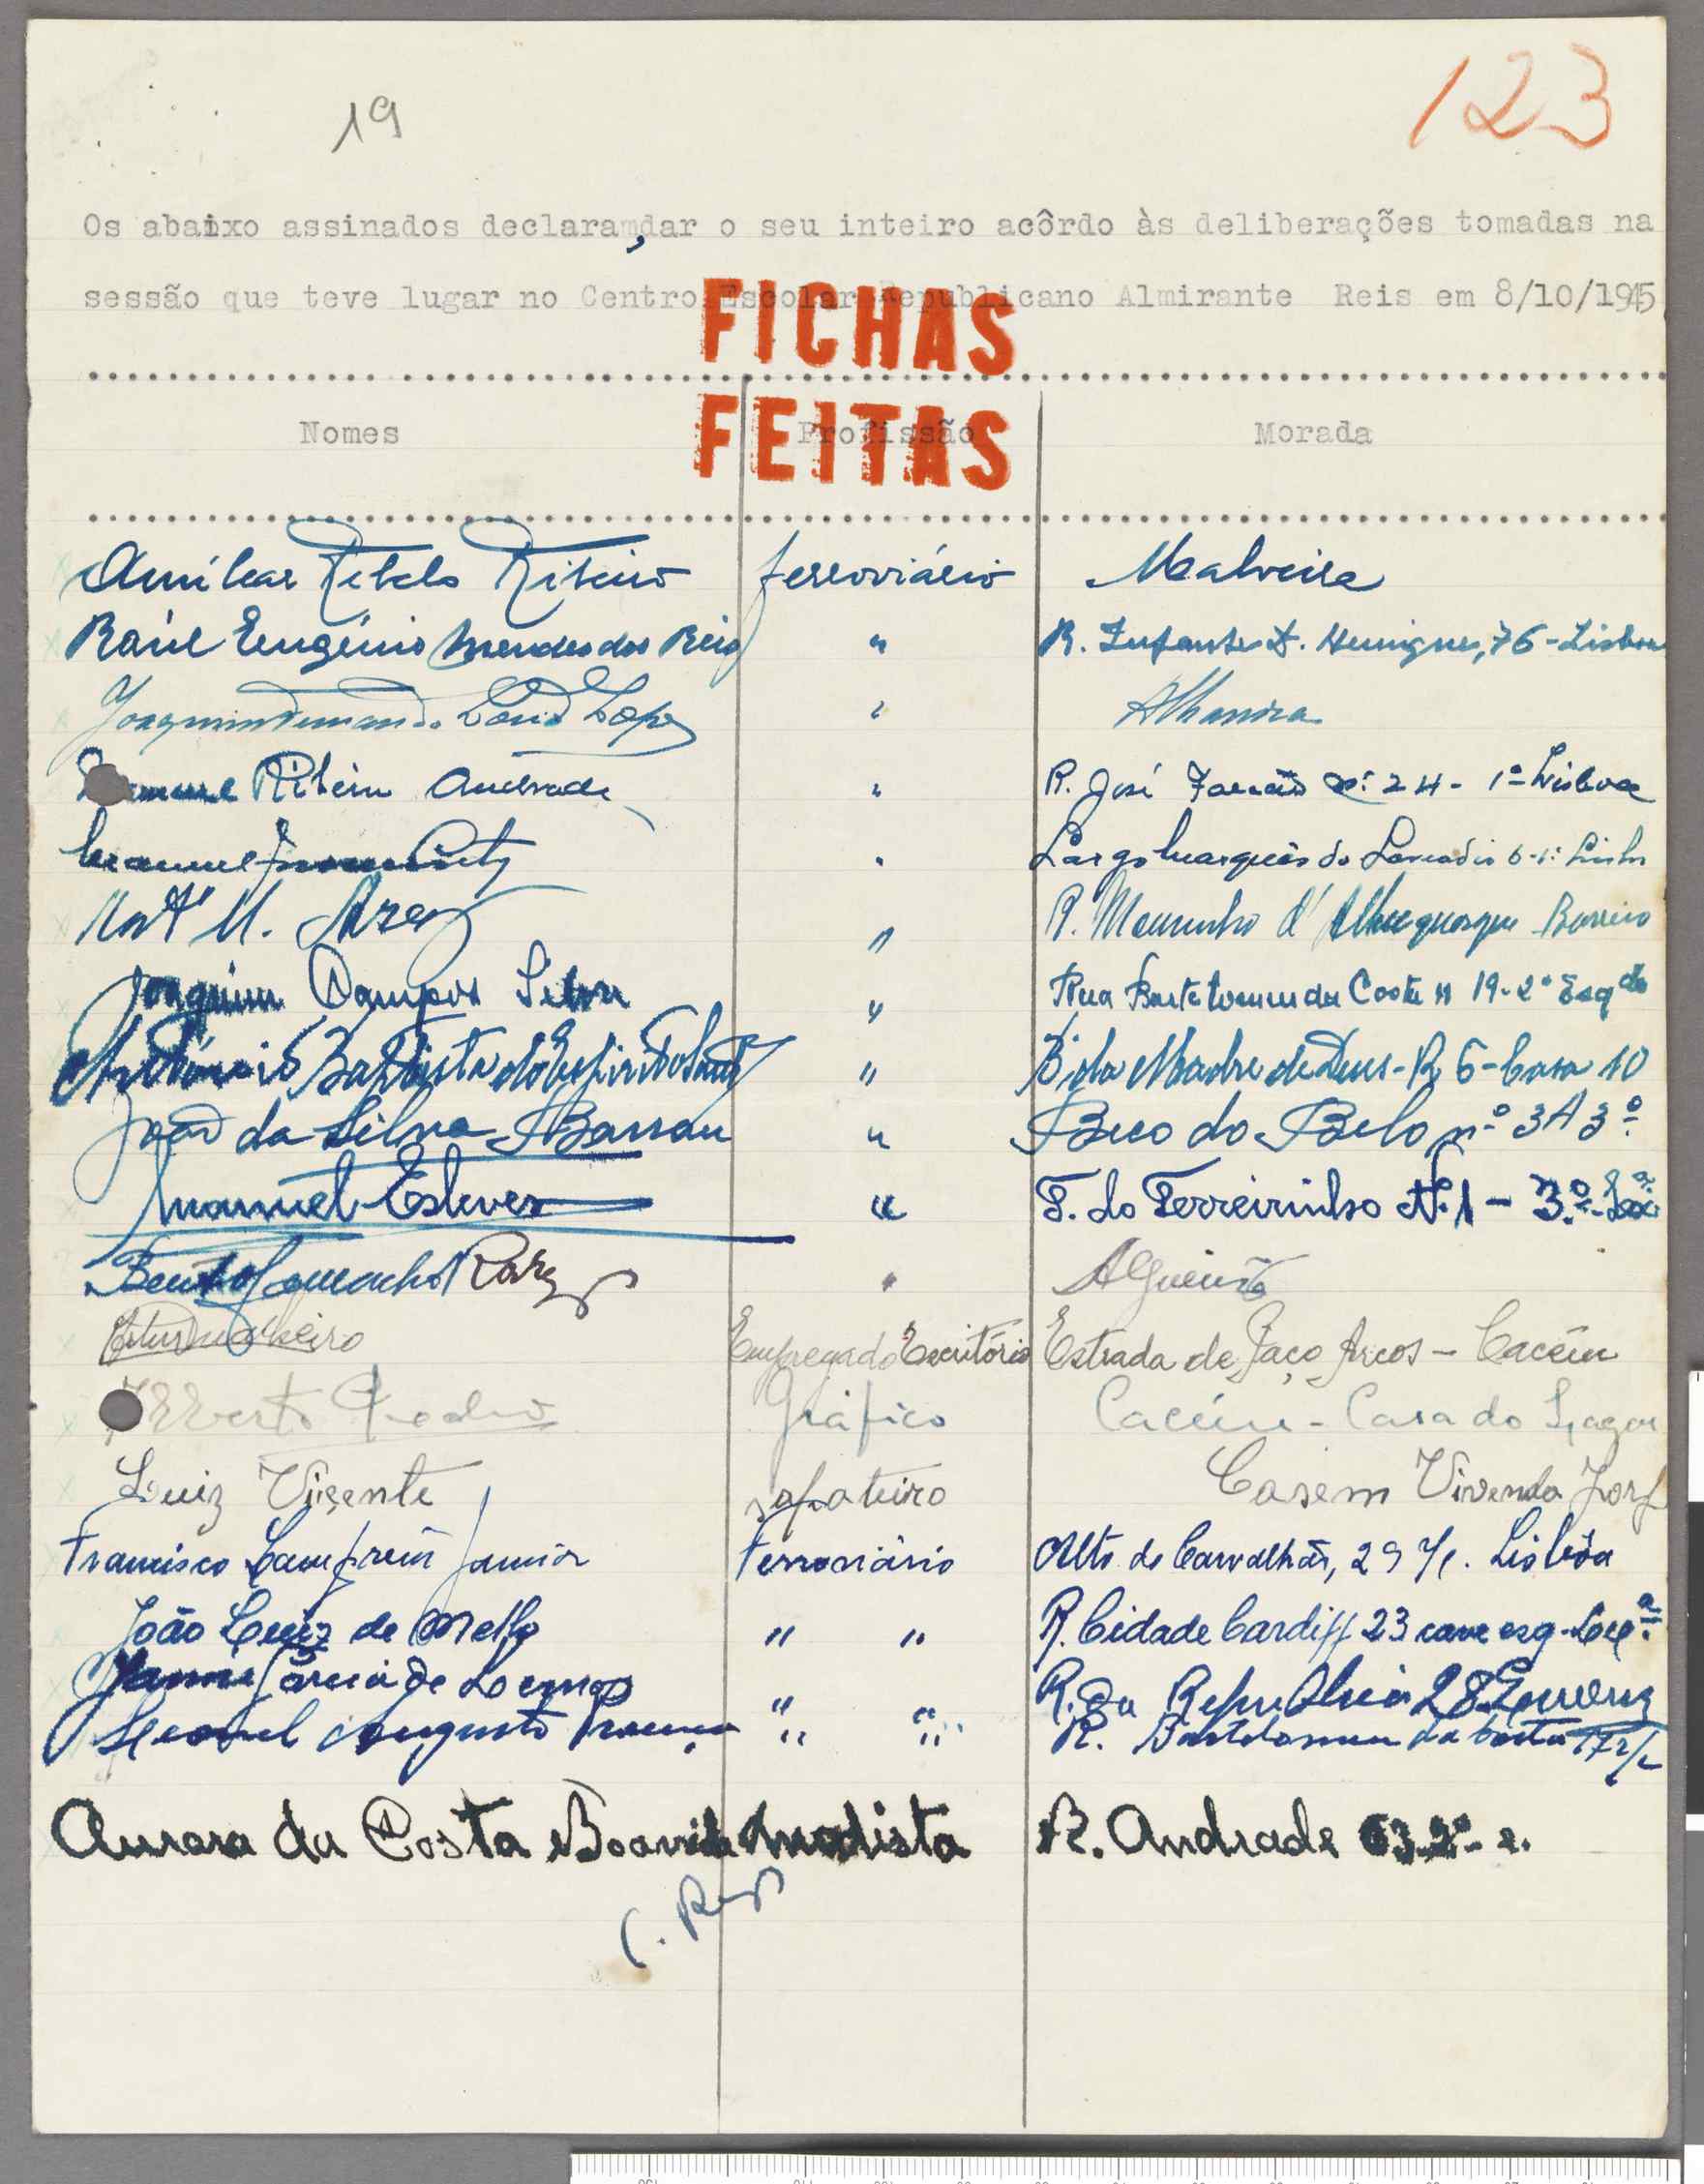 123
19
Os abaixo assinados declaram, dar o seu inteiro acôrdo às deliberações tomadas na
sessão que teve lugar no Centro Escolar Republicano Almirante Reis em 8/10/1945
FICHAS
FEITAS
Nomes Profissão Morada
Amílcar Rebelo Ribeiro ferroviário Malveira
Raúl Eugénio Mendes dos Reis " R. Infante D. Henrique, 76 - Lisboa
Joaquim David Lopes " Alhandra
Ribeiro Andrade " R. José Falcão nº 24 - 1º Lisboa
Manuel " Largo Marquês do Lavradio 6-1º
M. " R. Mousinho d'Albuquerque Barreiro
Joaquim Campos Silva " Rua Bartolomeu da Costa 19-2º Esqdo
António Baptista do Espirito Santo " B. da Madre de Deus - R 6 - Casa 10
João da Silva Barrau " Beco do Belo nº 3A 3º
Manuel Esteves " T. do Terreirinho Nº 1 - 3º Lxª
Bento Camacho " Algueirão
Artur Empregado Escritório Estrada de Paço Arcos - Cacém
Pedro Gráfico Cacém - Casa do Lagar
Luiz Viçente sapateiro Casem Vivenda
Francisco Júnior Ferroviário Alto do Carvalhão, 29 r/c. Lisbôa
João Luiz de Mello " " R. Cidade Cardiff 23 cave esq.
Garcia de Lemos " " R. da Republica 28
Leonel Augusto " " R. Bartolomeu da Costa 17 r/c
Aurora da Costa Boavida Modista R. Andrade 63 2º e.